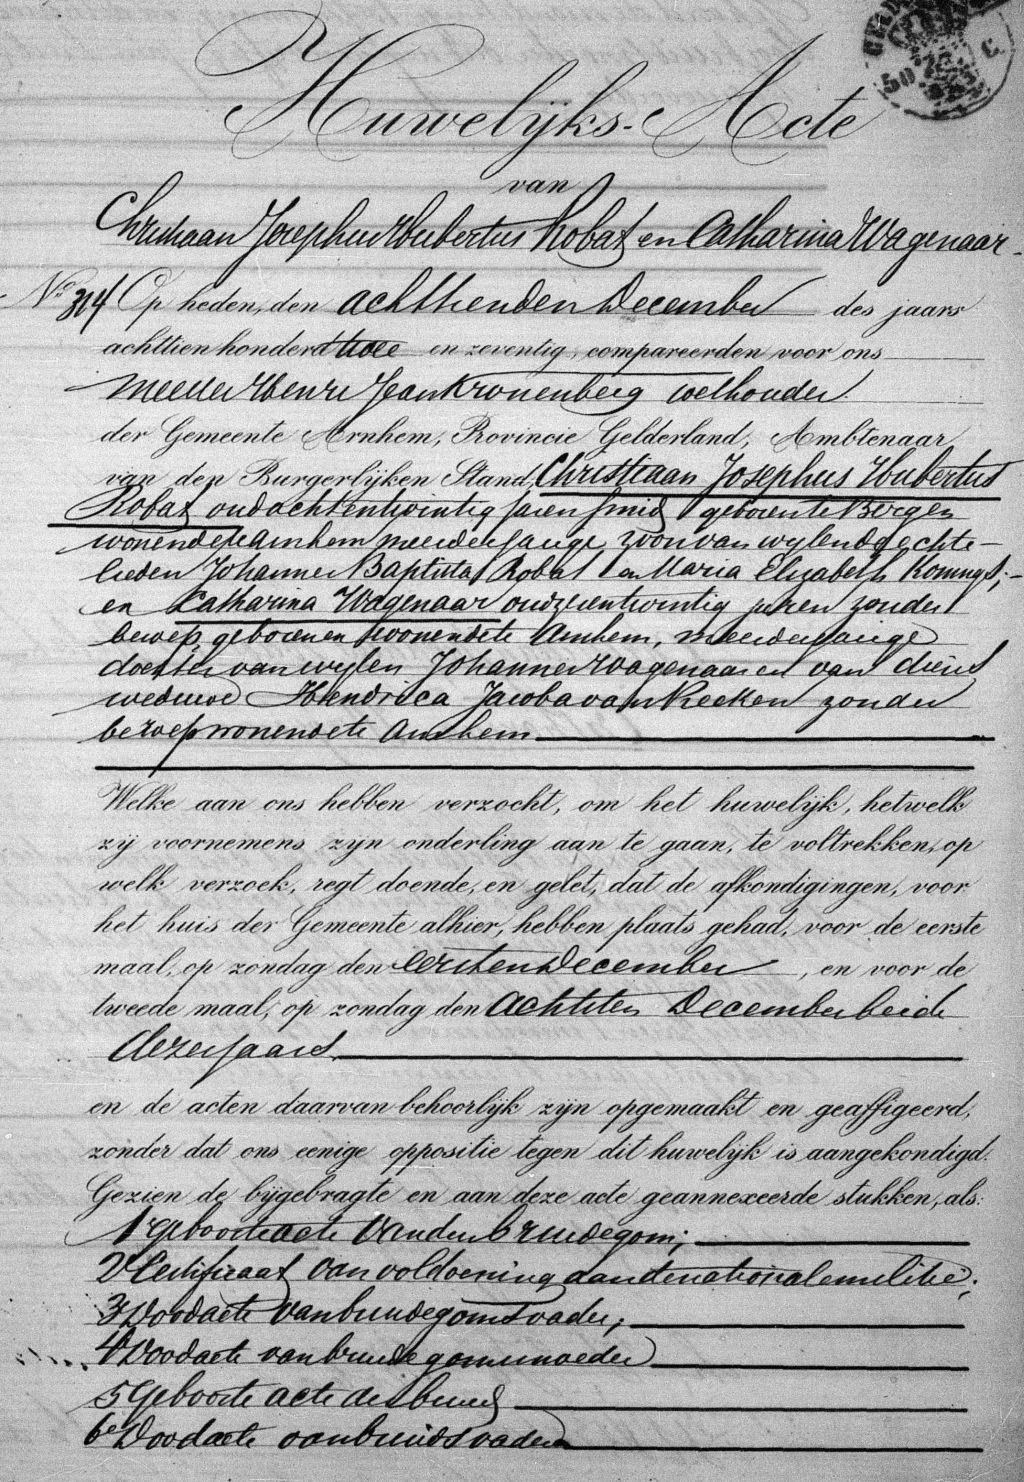 50 C.
Huwelijks-Acte
van
Christiaan Josephus Hubertus Robat en Catharina Wagenaar
No. 314 Op heden, den achttienden December des jaars
achttien honderd twee en zeventig, compareerden voor ons
Meester Henri Jean Kronenberg wethouder
der Gemeente Arnhem, Provincie Gelderland, Ambtenaar
van den Burgerlijken Stand, Christiaan Josephus Hubertus
Robat oud achtentwintig jaren smid geboren te Bergen
wonende te Arnhem meerderjarige zoon van wylen de echte-
lieden Johannes Baptista Robat en Maria Elizabeth Konings;
en Catharina Wagenaar oud zesentwintig jaren zonder
beroep, geboren en wonende te Arnhem, meerderjarige
dochter van wylen Johannes Wagenaar en van diens
weduwe Hendrica Jacoba van Reeken zonder
beroep wonende te Arnhem
Welke aan ons hebben verzocht, om het huwelijk, hetwelk
zij voornemens zijn onderling aan te gaan, te voltrekken, op
welk verzoek, regt doende, en gelet, dat de afkondigingen, voor
het huis der Gemeente alhier, hebben plaats gehad, voor de eerste
maal, op zondag den eersten December, en voor de
tweede maal, op zondag den achtsten December beide
dezes jaars
en de acten daarvan behoorlijk zijn opgemaakt en geaffigeerd,
zonder dat ons eenige oppositie tegen dit huwelijk is aangekondigd.
Gezien de bijgebragte en aan deze acte geannexeerde stukken, als:
1e Geboorteacte van den bruidegom;
2e Certificaat van voldoening aan de nationale militie;
3e Doodacte van bruidegoms vader;
4e Doodacte van bruidegoms moeder
5e Geboorte acte der bruid
6e Doodacte van bruids vader